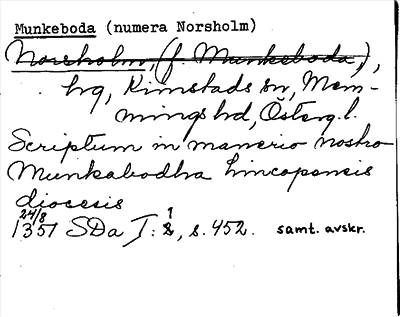 Munkeboda (numera Norsholm)
Norsholm, (f. Munkeboda),
hg, Kimstads sn, Mem-
mings hd, Österg. l.
Scriptum in manerio nostro
Munkabodha Lincopensis
diocesis
24/8
1351 SDa I: 1, s. 452. samt. avskr.